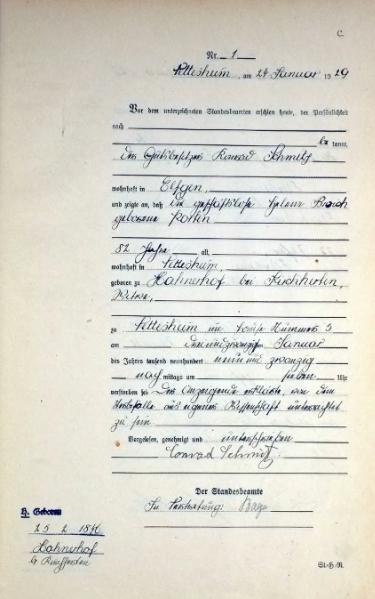 C.
Nr. 1
am 24 Januar 1929
Vor dem unterzeichneten Standesbeamten erschien heute, der Persönlichkeit
nach
be kannt,
der Gutsbesitzer Konrad Schmitz
wohnhaft in Elfgen,
und zeigte an, daß die geschäftslose Helene
geborene
52 Jahre alt,
wohnhaft in
geboren zu Hahnerhof bei Kirchherten,
Witwe,
zu im Hause Nummer 5
am dreiundzwanzigsten Januar
des Jahres tausend neunhundert neunundzwanzig
nach mittags um sieben Uhr
verstorben sei. Der Anzeigende erklärte, von dem
Sterbefalle aus eigener Wissenschaft unterrichtet
zu sein
Vorgelesen, genehmigt und unterschrieben
Conrad Schmitz
Der Standesbeamte
In Vertretung:
H. Geboren
25 2
Hahnerhof
St-H-R.